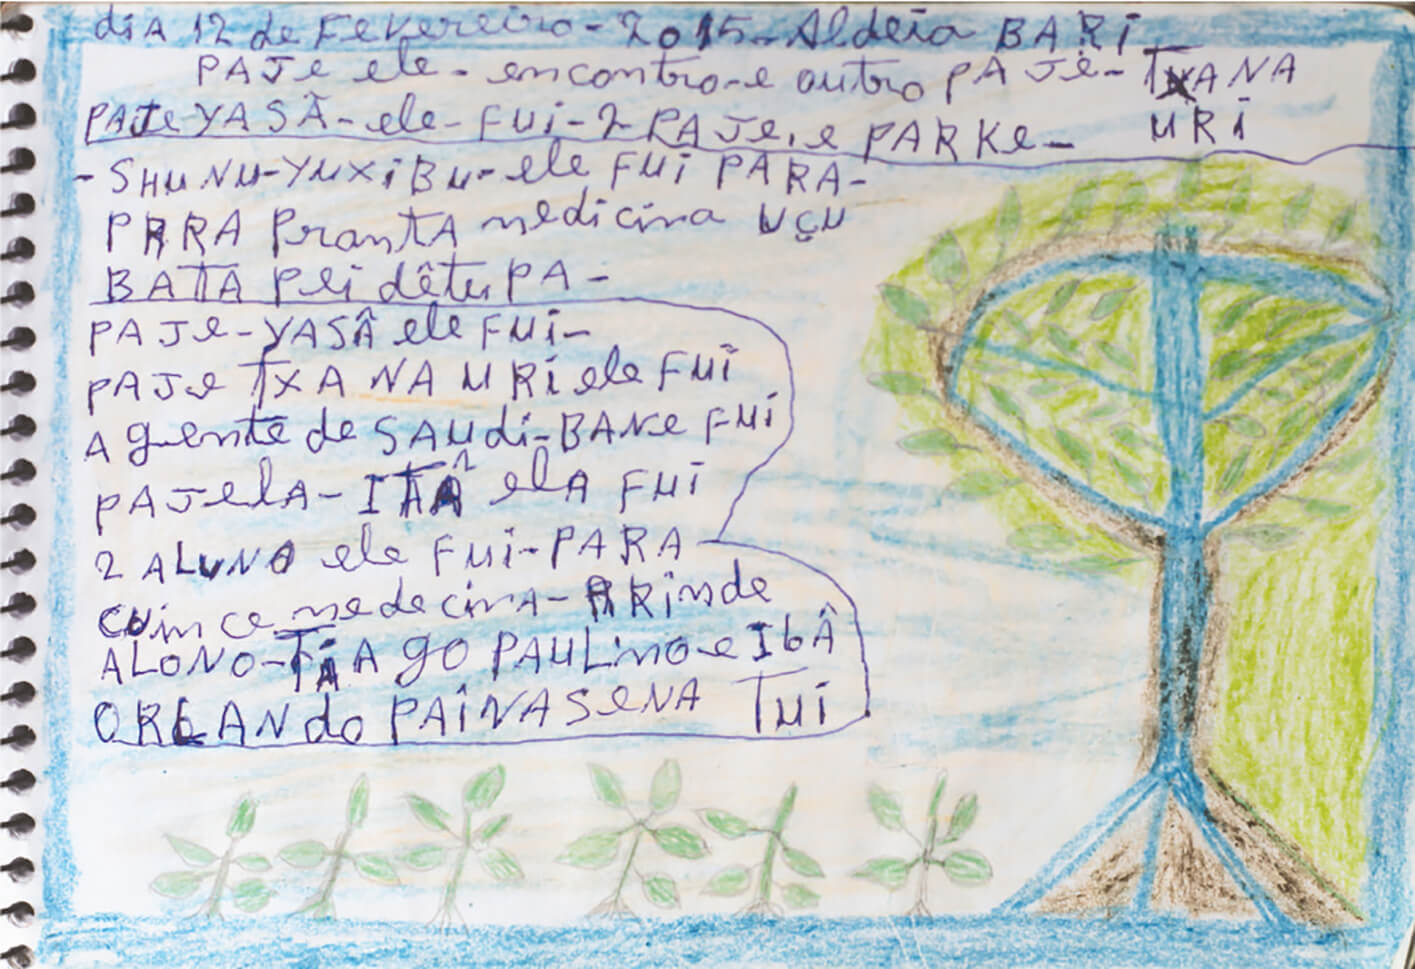 dia 12 de Fevereiro - 2015 - Aldeia BARI
PAJe ele - encontro-e outro PAJÉ - TXANA URI
PAJe YASÃ - ele - FUi - 2 PAJe, e PARKe -
- SHUNU - YUXiBU - ele FUi PARA -
PARA PrantA medicina UÇU
BATA Pei dêtu PA -
PAJe - YASÂ ele FUi -
PAJe TXANA URi ele FUi
Aguente de SAUdi - BANe FUi
PAJelA - ITÂ elA FUi
2 ALUNO ele FUi - PARA
CUince medecinA - ARinde
ALONO - TiAgo PAULino e IbÂ
ORLANdo PAiVASeNA TUi